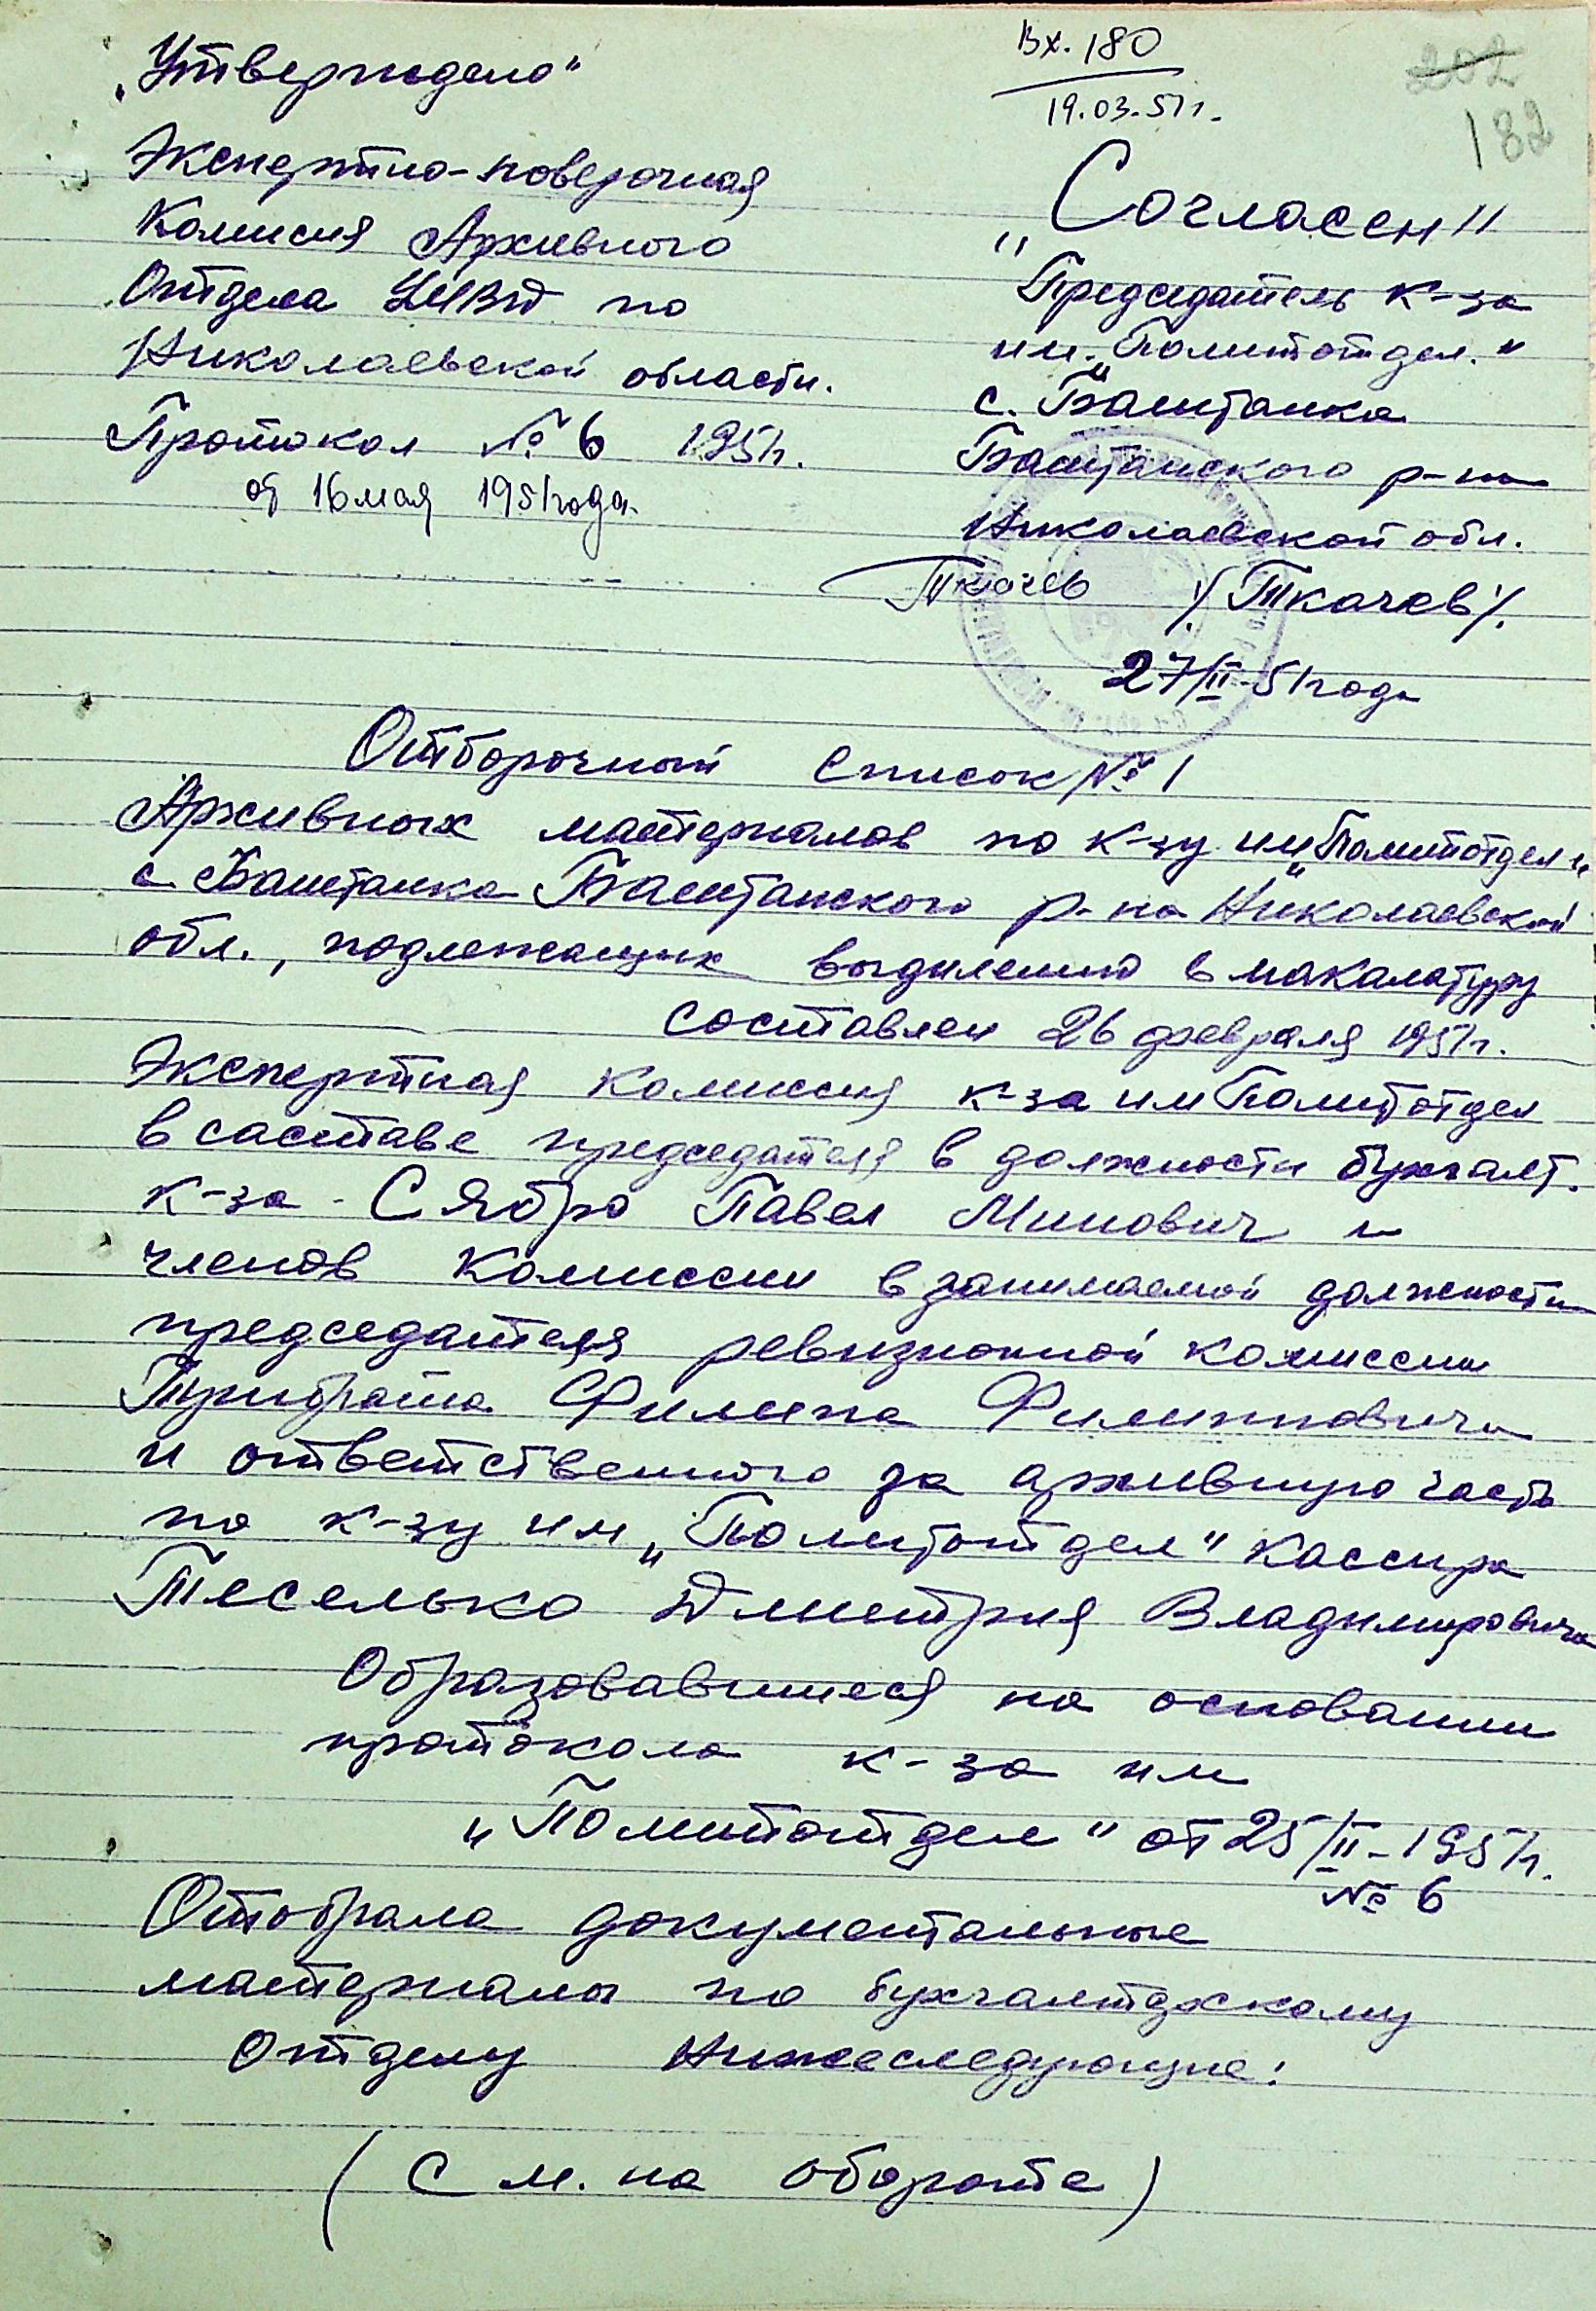 Вх. 180
19.03.51г.
202
182
„Утверждаю"
Экспертно-поверочная
Комисия Архивного
Отдела УМВД по
Николаевской области.
Протокол № 6 1951г.
от 16 мая 1951 года.
„Согласен"
Председатель к-за
им. „Политотдел."
с. Баштанка
Баштанского р-на
Николаевской обл.
Ткачев /Ткачев/.
27/II-51 года
Отборочный список № 1
Архивных материалов по к-зу им „Политотдел"
с. Баштанка Баштанского р-на Николаевской
обл., подлежащих выделению в макалатуру
составлен 26 февраля 1951г.
Экспертная комиссия к-за им Политотдел
в саставе председателя в должности бухгалт.
к-за - Сябро Павел Минович и
членов комиссии в занимаемой должности
председателя ревизионной комиссии
Трибрата Филипа Филипповича
и ответственного за архивную часть
по к-зу им „Политотдел" кассира
Теселько Дмитрия Владимировича
Образовавшиеся на основании
протокола к-за им
„Политотдел" от 25/II-1951г.
№ 6
Отобрала документальные
материалы по бухгалтерскому
отделу нижеследующие:
(См. на обороте)